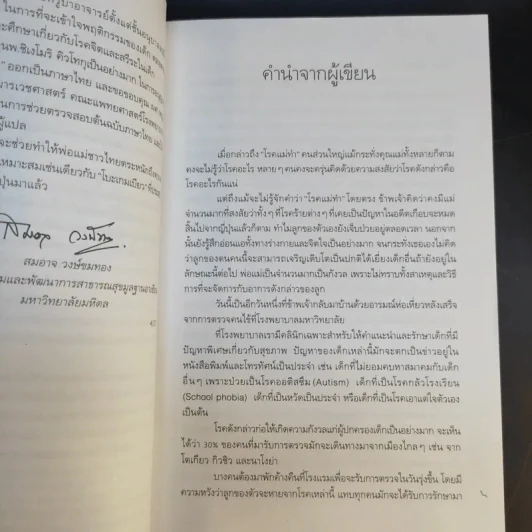 ในการที่จะเข้าใจพฤติกรรมของเด็ก
ศึกษาเกี่ยวกับโรคจิตและสรีระในเด็ก
นพ.ชิเงโมริ คิวโทกุเป็นอย่างมาก
ออกเป็นภาษาไทย และขอขอบคุณ
ารเวชศาสตร์ คณะแพทยศาสตร์
นการช่วยตรวจสอบต้นฉบับภาษาไทย
ผู้แปล
จะช่วยทำให้พ่อแม่ชาวไทยตระหนักถึง
เหมาะสมเช่นเดียวกับ "โบะเกมเบียว"
ปุ่นมาแล้ว
สมอาจ วงษ์ขมทอง
มและพัฒนาการสาธารณสุขมูลฐานอาเซียน
มหาวิทยาลัยมหิดล
คำนำจากผู้เขียน
เมื่อกล่าวถึง "โรคแม่ทำ" คนส่วนใหญ่แม้กระทั่งคุณแม่ทั้งหลายก็ตาม
คงจะไม่รู้ว่าโรคอะไร หลายๆ คนคงจะครุ่นคิดด้วยความสงสัยว่าโรคดังกล่าวคือ
โรคอะไรกันแน่
แต่ถึงแม้จะไม่รู้จักคำว่า "โรคแม่ทำ" โดยตรง ข้าพเจ้าคิดว่าคงมีแม่
จำนวนมากที่สงสัยว่าทั้งๆ ที่โรคร้ายต่างๆ ที่เคยเป็นปัญหาในอดีตเกือบจะหมด
สิ้นไปจากญี่ปุ่นแล้วก็ตาม ทำไมลูกของตัวเองยังเจ็บป่วยอยู่ตลอดเวลา นอกจาก
นั้นยังรู้สึกอ่อนแอทั้งทางร่างกายและจิตใจเป็นอย่างมาก จนกระทั่งเธอเองไม่คิด
ว่าลูกของตนคนนี้จะสามารถเจริญเติบโตเป็นปกติได้เยี่ยงเด็กอื่นถ้ายังอยู่ใน
ลักษณะนี้ต่อไป พ่อแม่เป็นจำนวนมากเป็นกังวล เพราะไม่ทราบทั้งสาเหตุและวิธี
การที่จะจัดการกับอาการดังกล่าวของลูก
วันนี้เป็นอีกวันหนึ่งที่ข้าพเจ้ากลับมาบ้านด้วยอารมณ์ห่อเหี่ยวหลังเสร็จ
จากการตรวจคนไข้ที่โรงพยาบาลมหาวิทยาลัย
ที่โรงพยาบาลเรามีคลินิกเฉพาะสำหรับให้คำแนะนำและรักษาเด็กที่มี
ปัญหาพิเศษเกี่ยวกับสุขภาพ ปัญหาของเด็กเหล่านี้มักจะตกเป็นข่าวอยู่ใน
หนังสือพิมพ์และโทรทัศน์เป็นประจำ เช่น เด็กที่ไม่ยอมคบหาสมาคมกับเด็ก
อื่นๆ เพราะป่วยเป็นโรคออติสซึ่ม (Autism) เด็กที่เป็นโรคกลัวโรงเรียน
(School phobia) เด็กที่เป็นหวัดเป็นประจำ หรือเด็กที่เป็นโรคเอาแต่ใจตัวเอง
เป็นต้น
โรคดังกล่าวก่อให้เกิดความกังวลแก่ผู้ปกครองเด็กเป็นอย่างมาก จะเห็น
ได้ว่า 30% ของคนที่มารับการตรวจมักจะเดินทางมาจากเมืองไกลๆ เช่น จาก
โตเกียว กิวชิว และนาโงย่า
บางคนต้องมาพักค้างคืนที่โรงแรมเพื่อจะรับการตรวจในวันรุ่งขึ้น โดยมี
ความหวังว่าลูกของตัวจะหายจากโรคเหล่านี้ แทบทุกคนมักจะได้รับการรักษามา